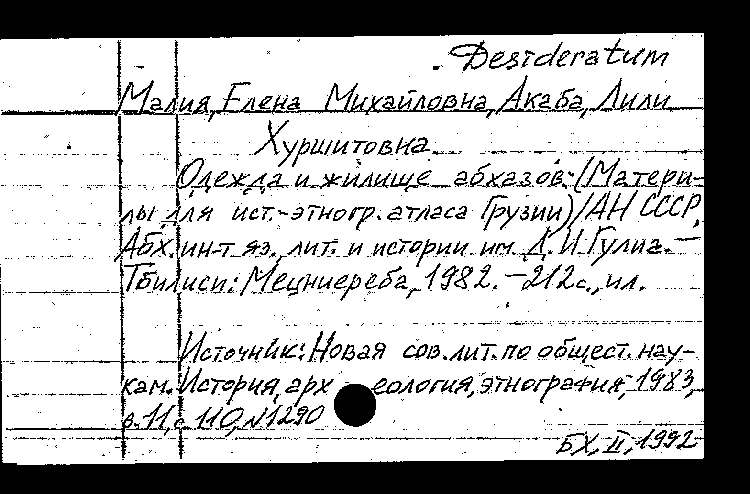 Desideratum
Малия, Елена Михайловна, Акаба, Лили
Хуршитовна
Одежда и жилище абхазов: (Матери-
лы для ист.-этногр. атласа Грузии)/АН СССР,
Абх. ин-т яз. лит. и истории им. Д. И Гулиа. —
Тбилиси: Мецниереба, 1982. — 212 с., ил.
Источник: Новая сов. лит. по общест. нау-
кам. История, археология, этнография, 1983,
в. 11, с. 110, N1290
БХ, II, 1992